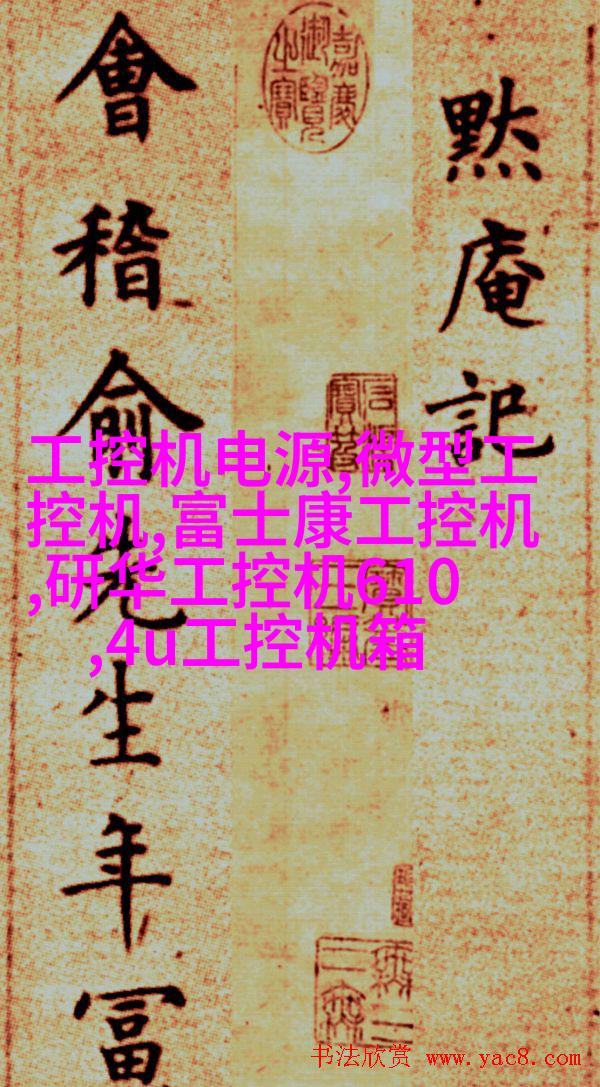 默庵記
嘉慶
御覽
之寶
會稽俞先生年冨
工控机电源,微型工
控机,富士康工控机
,研华工控机610
,4u工控机箱
书法欣赏 www.yac8.com